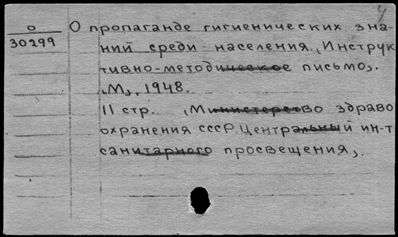 О
30299
О пропаганде гигиенических зна-
ний среди населения. (Инструк
тивно-методическое письмо).
(М), 1948.
11 стр. (Министерство здраво
охранения СССР. Центральный ин-т
санитарного просвещения).